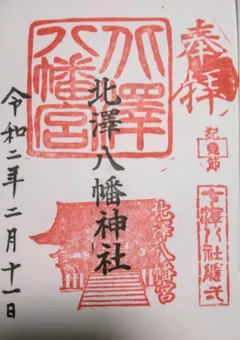 奉拝
紀元節
下北澤八社随一
北澤八幡宮
北澤八幡神社
北澤八幡宮
令和二年二月十一日